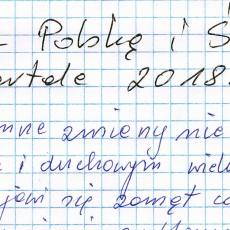 - Polskę i Ś
artale 2018
mne zmiany nie
i duchowym wielu
jawi się zamęt co